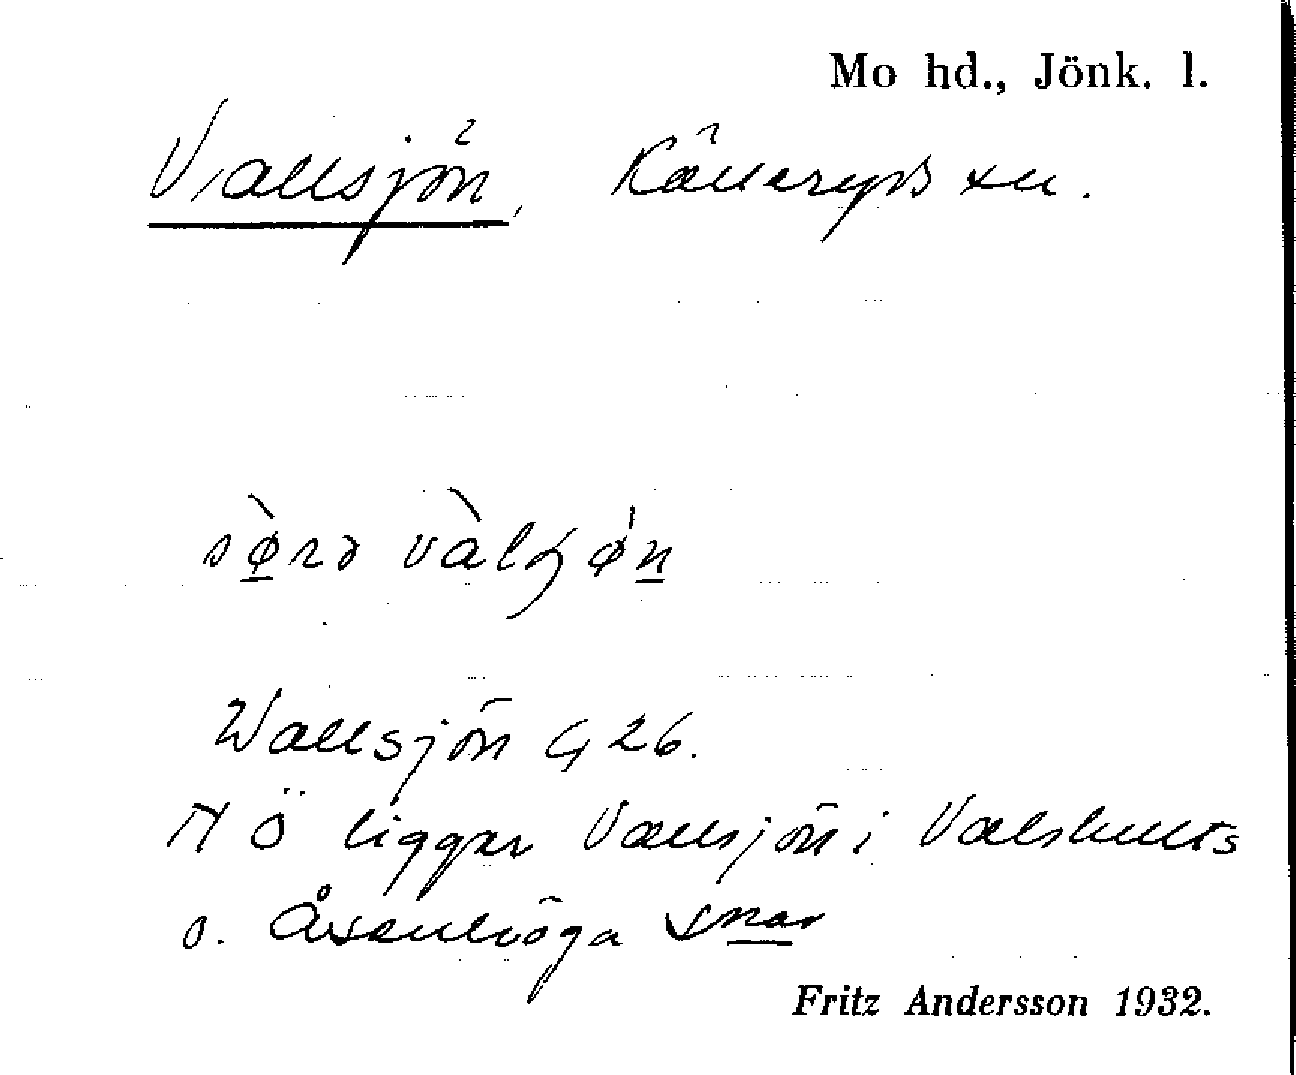 Mo hd., Jönk. l.
Vallsjön, Källeryds sn.
sø̱̀rə vàlʒø̍ṉ
Wallsjön G 26.
N Ö ligger Vallsjön i Valshults
o. Åsenhöga snar
Fritz Andersson 1932.